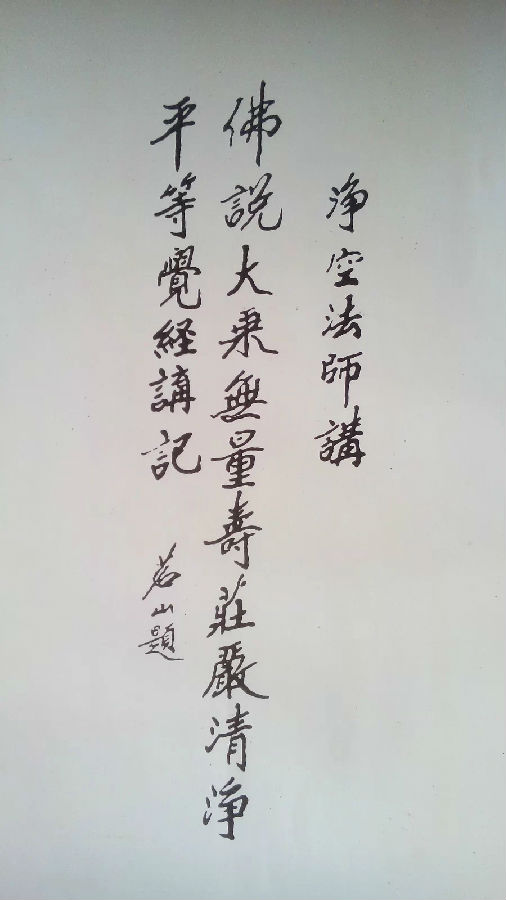 淨空法師講
佛説大乘無量壽莊嚴清淨
平等覺経講記
茗山題